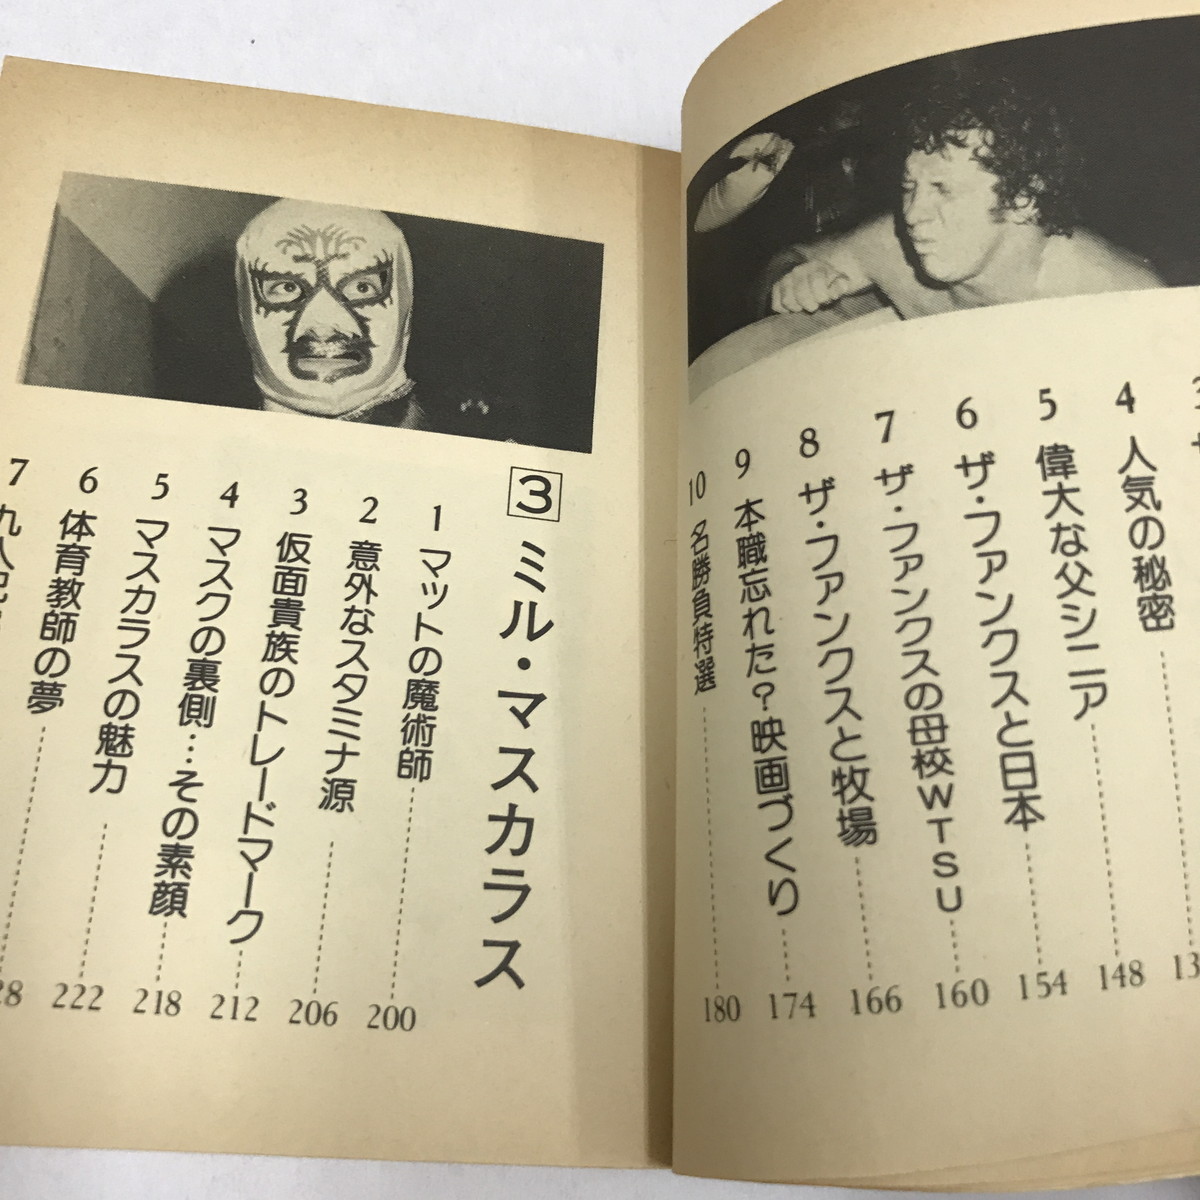 4 人気の秘密 148
5 偉大な父シニア 154
6 ザ・ファンクスと日本 160
7 ザ・ファンクスの母校WTSU 166
8 ザ・ファンクスと牧場 174
9 本職忘れた?映画づくり 180
10 名勝負特選
3 ミル・マスカラス
1 マットの魔術師 200
2 意外なスタミナ源 206
3 仮面貴族のトレードマーク 212
4 マスクの裏側…その素顔 218
5 マスカラスの魅力 222
6 体育教師の夢
7